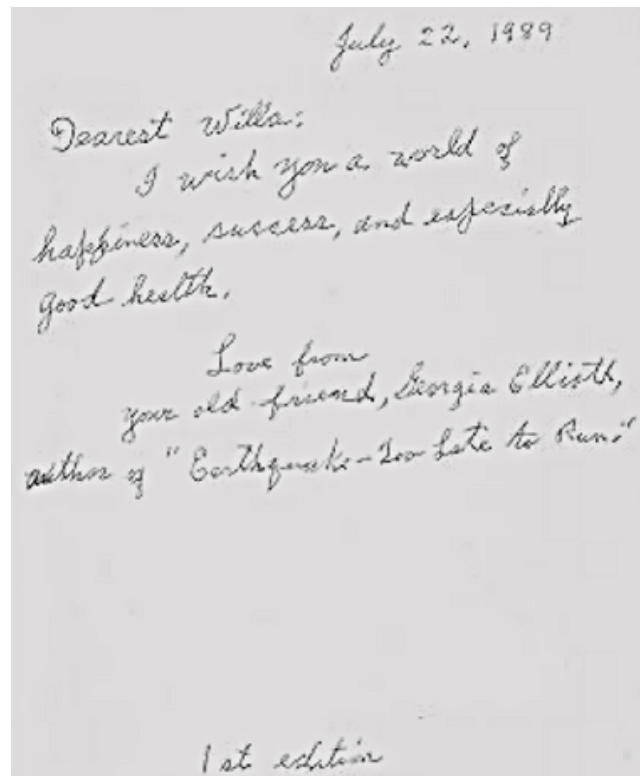 July 22, 1989
Dearest Willa:
I wish you a world of
happiness, success, and especially
good health.
Love from
your old friend, Georgia Elliott,
author of "Earthquake-Too Late to Run."
1st edition